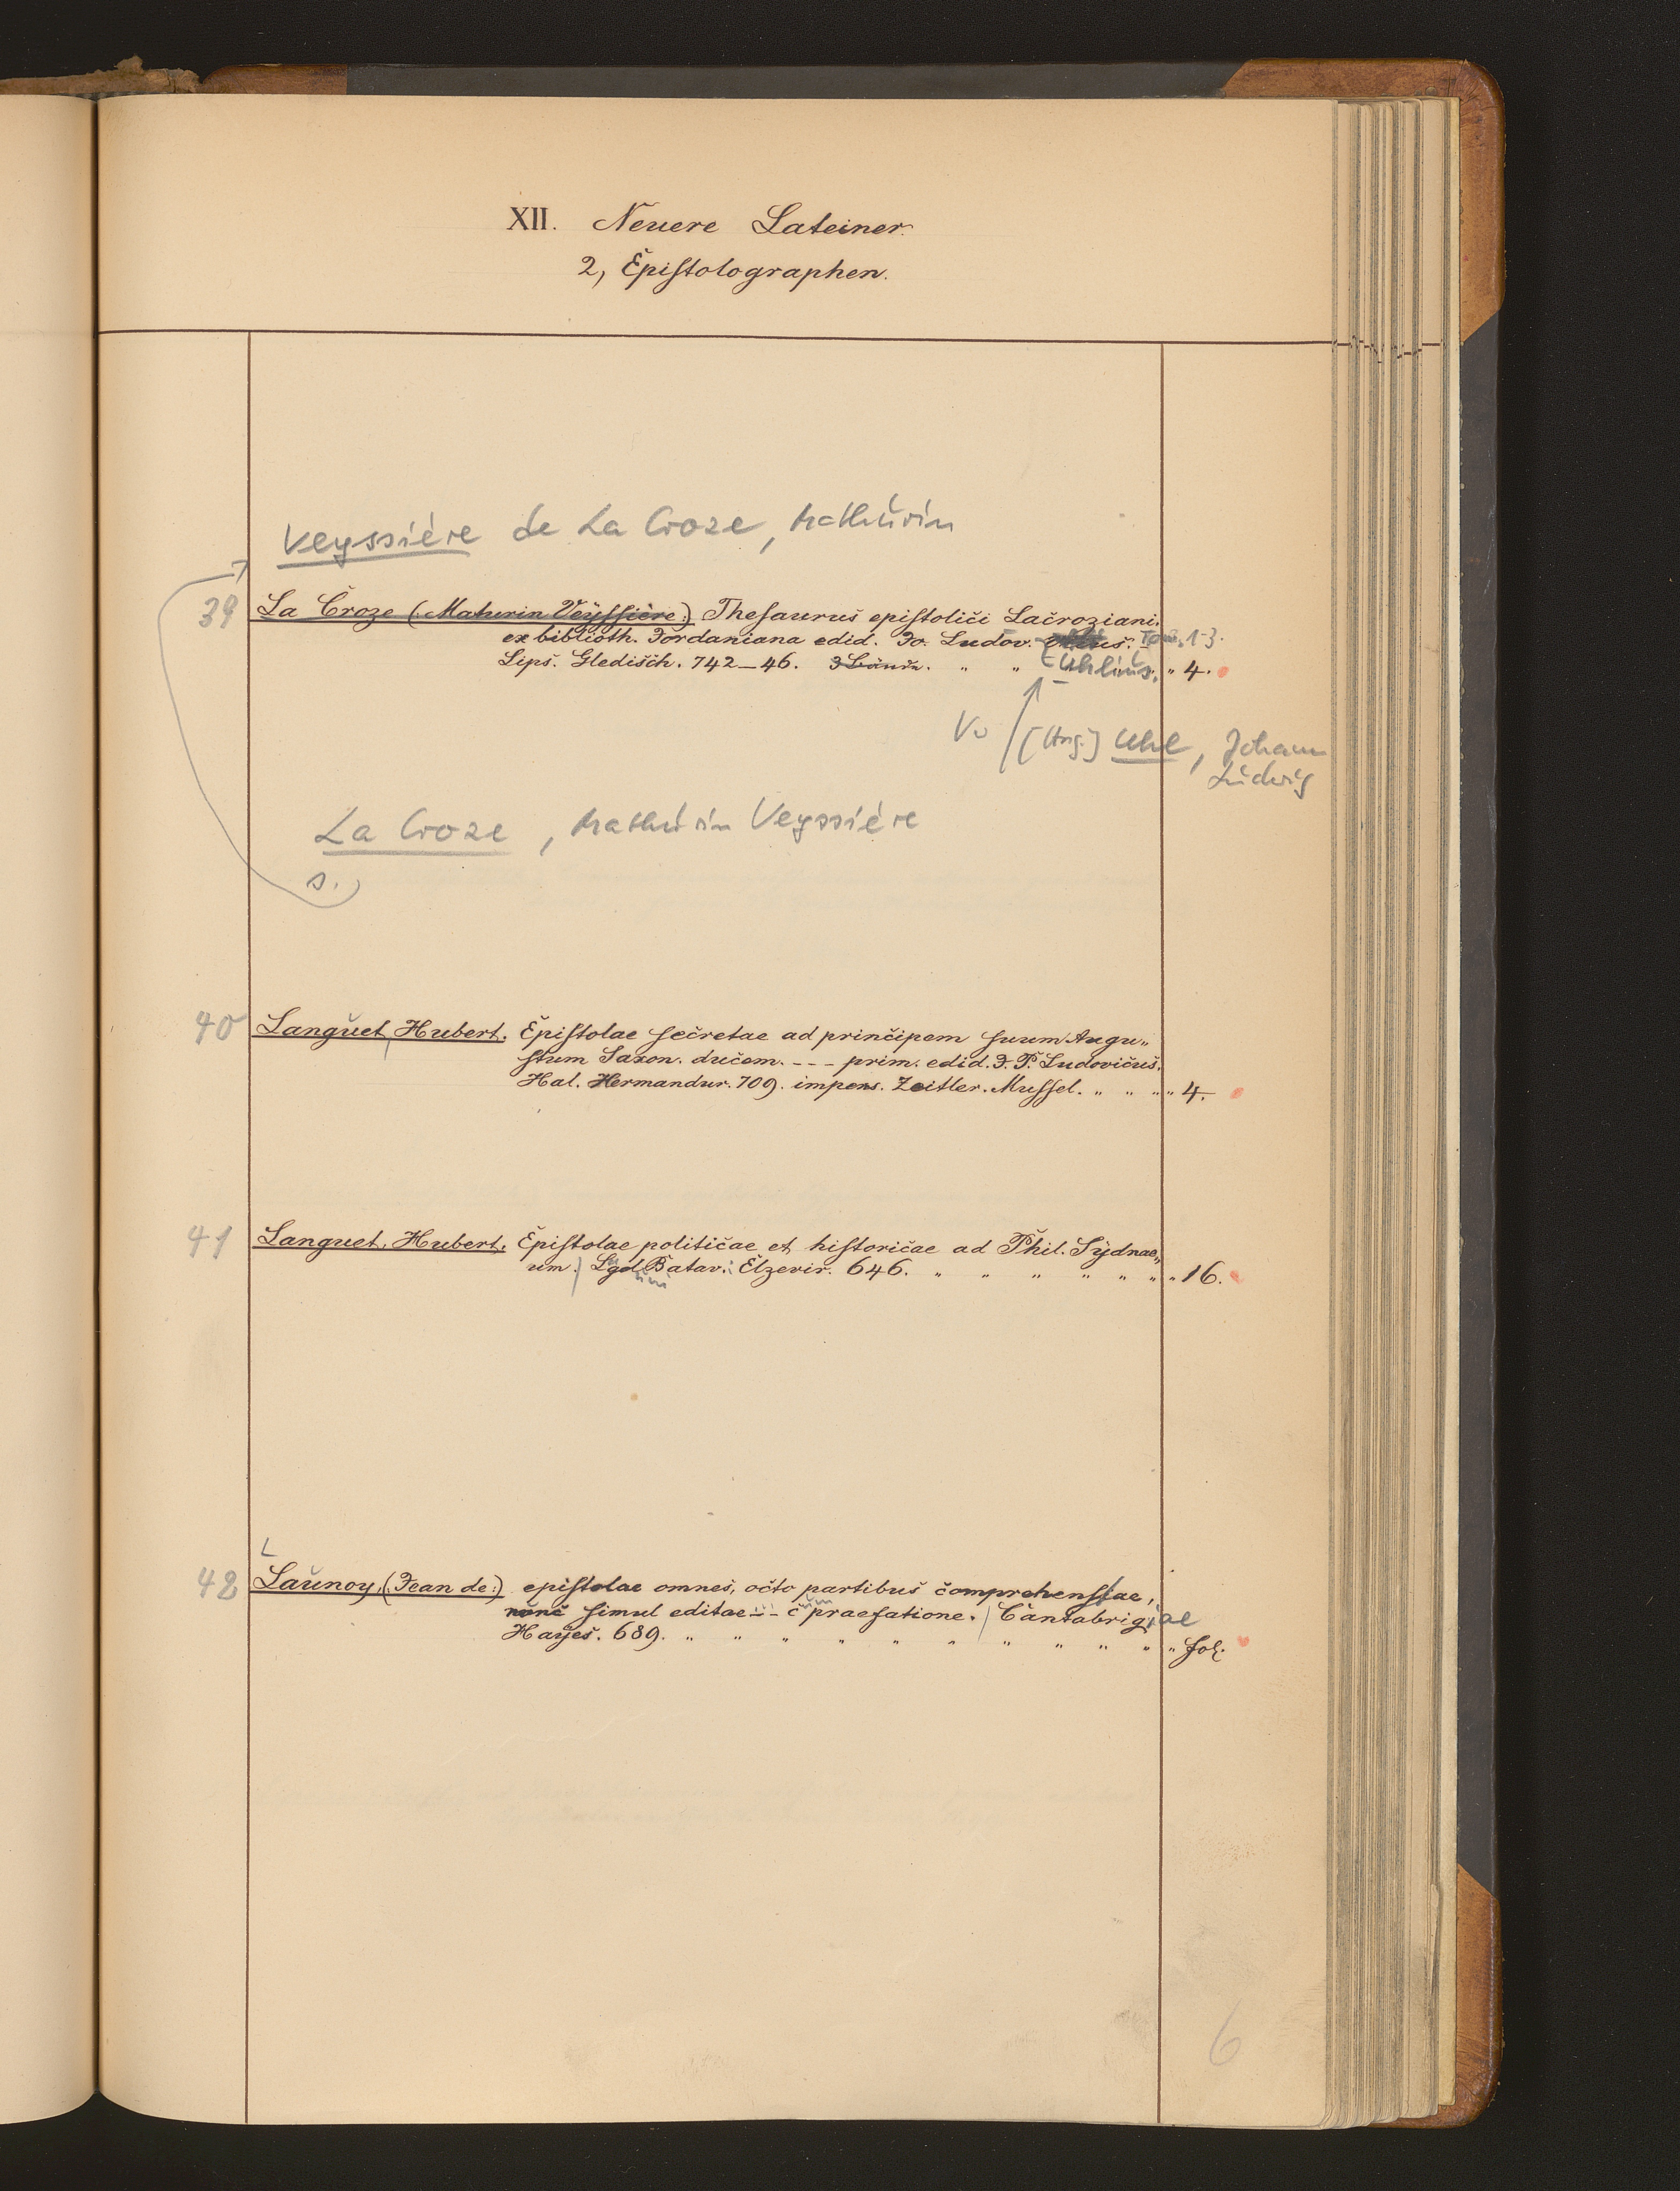 XII. Neuere Lateiner.
2, Epistolographen.
Veyssière de La Croze, Mathurin
39 La Croze (Maturin Veÿssière:) Thesaurus epistolici Lacroziani.
ex biblioth. Jordaniana edid. Jo. Ludov. Tom. 1-3.
Lips. Gledisch. 742–46. 3 Bände. " " Uhlius. " 4.
Vw [Hrsg.] Uhl, Johann
Ludwig
La Croze, Mathurin Veyssière
s.
40 Languet, Hubert. Epistolae secretae ad principem suum Augu„
stum Saxon. ducem. - - - prim. edid. J. P. Ludovicus.
Hal. Hermandur. 709. impens. Zeitler. Mussel. " " " " 4.
41 Languet, Hubert. Epistolae politicae et historicae ad Phil. Sÿdnae„
um. Lgd Batav. Elzevir. 646. " " " " " " " 16.
42 Launoy, (Jean de:) epistolae omnes, octo partibus comprehensae,
nunc simul editae - - c praefatione. Cantabrigiae
Hayes. 689. " " " " " " " " " " " fol.
6